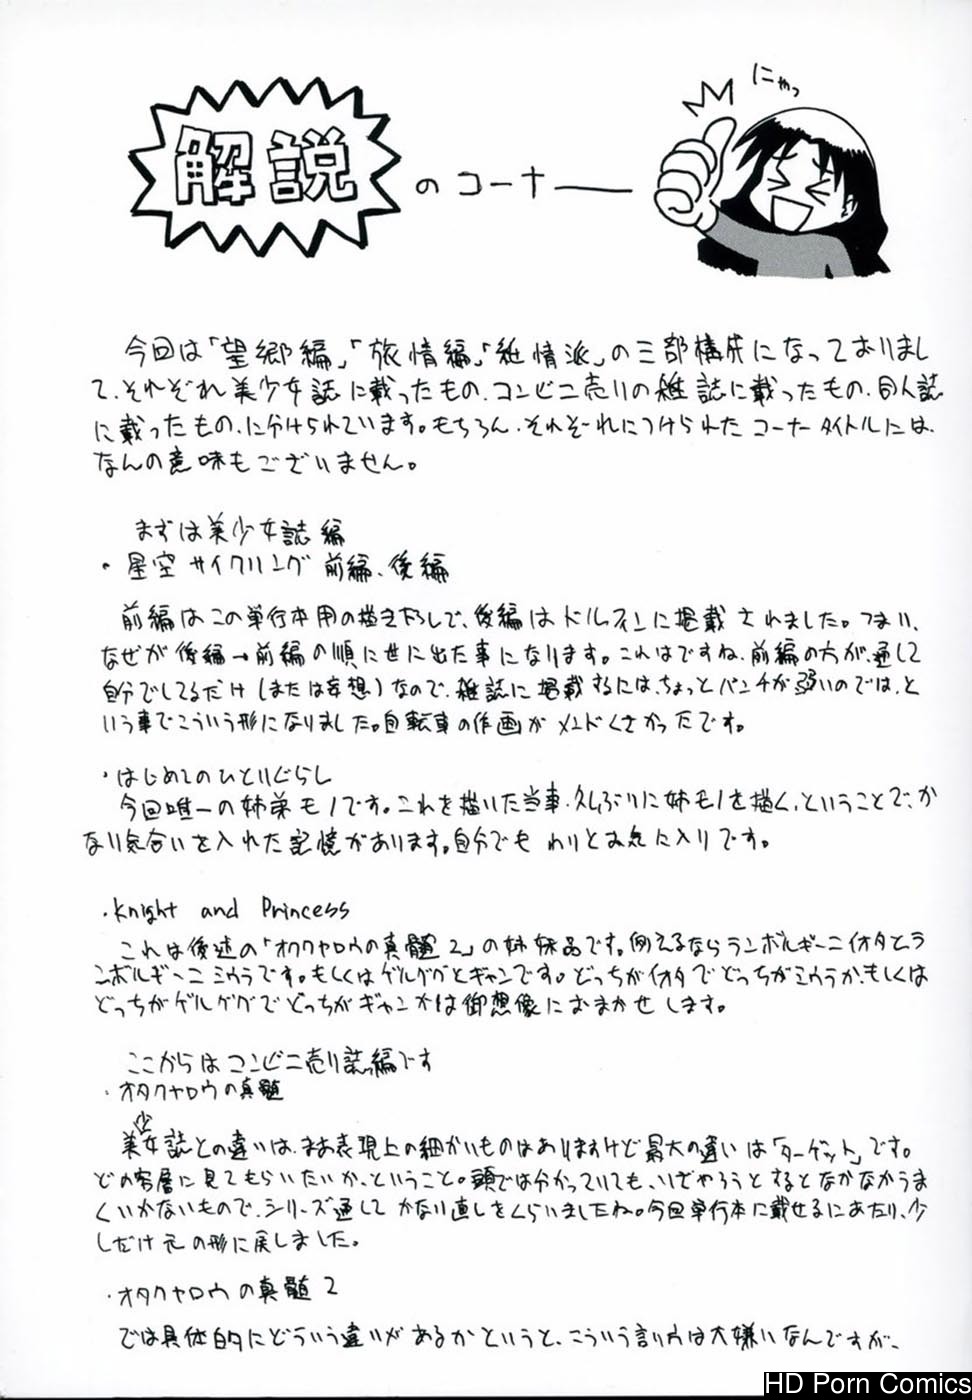 解説のコーナー
にゃっ
今回は「望郷編」「旅情編」「純情派」の三部構成になっておりまし
て、それぞれ美少女誌に載ったもの、コンビニ売りの雑誌に載ったもの、同人誌
に載ったもの、に分けられています。もちろん、それぞれにつけられたコーナータイトルには、
なんの意味もございません。
まずは美少女誌編
・星空サイクリング 前編、後編
前編はこの単行本用の描き下ろしで、後編はドルフィンに掲載されました。つまり、
なぜか後編→前編の順に世に出た事になります。これはですね、前編の方が、通して
自分でしてるだけ(または妄想)なので、雑誌に掲載するには、ちょっとパンチが弱いのでは、と
いう事でこういう形になりました。自転車の作画がメンドくさかったです。
・はじめてのひとりぐらし
今回唯一の姉弟モノです。これを描いた当事、久しぶりに姉モノを描く、ということで、か
なり気合いを入れた記憶があります。自分でもわりとお気に入りです。
・Knight and Princess
これは後述の「オタクヤロウの真髄2」の姉妹品です。例えるならランボルギーニイオタとラ
ンボルギーニミウラです。もしくはゲルググとギャンです。どっちがイオタでどっちがミウラか、もしくは
どっちがゲルググでどっちがギャンかは御想像におまかせします。
ここからはコンビニ売り誌編です
・オタクヤロウの真髄
美少女誌との違いは、まあ表現上の細かいものはありますけど最大の違いは「ターゲット」です。
どの客層に見てもらいたいか、ということ。頭では分かっていても、いざやろうとするとなかなかうま
くいかないもので、シリーズ通してかなり直しをくらいましたね。今回単行本に載せるにあたり、少
しだけ元の形に戻しました。
・オタクヤロウの真髄 2
では具体的にどういう違いがあるかというと、こういう言い方は大嫌いなんですが、
HD Porn Comics